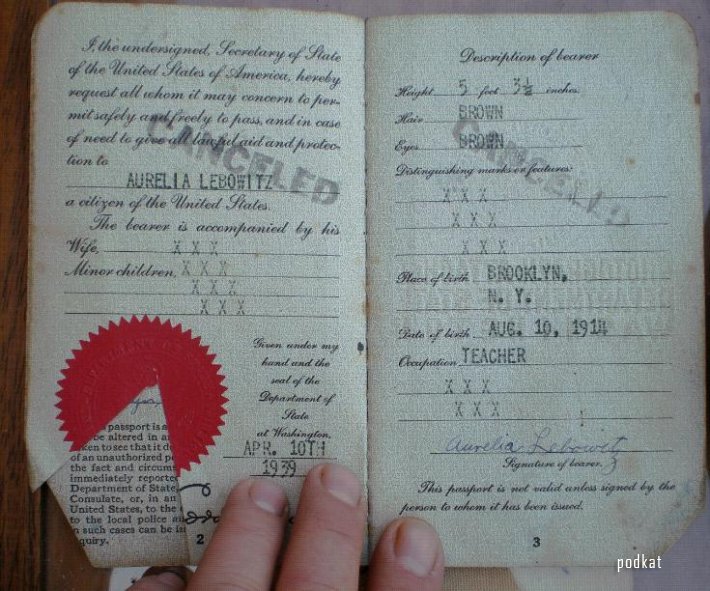 I, the undersigned, Secretary of State
of the United States of America, hereby
request all whom it may concern to per-
mit safely and freely to pass, and in case
of need to give all lawful aid and protec-
tion to
AURELIA LEBOWITZ
a citizen of the United States.
The bearer is accompanied by his
Wife, X X X
Minor children, X X X
X X X
X X X
CANCELED
Given under my
hand and the
seal of the
Department of
State
at Washington,
APR. 10TH
1939
passport is a
be altered in a
ken to see that it d
of an unauthorized p
the fact and circum
immediately reporte
Department of State,
Consulate, or, in an
United States, to the
to the local police a
n such cases can be i
quiry.
2
Description of bearer
Height 5 feet 3½ inches.
Hair BROWN
Eyes BROWN
Distinguishing marks or features:
X X X
X X X
X X X
CANCELED
Place of birth BROOKLYN,
N. Y.
Date of birth AUG. 10, 1914
Occupation TEACHER
X X X
X X X
Aurelia Lebowitz
Signature of bearer.
This passport is not valid unless signed by the
person to whom it has been issued.
3
podkat